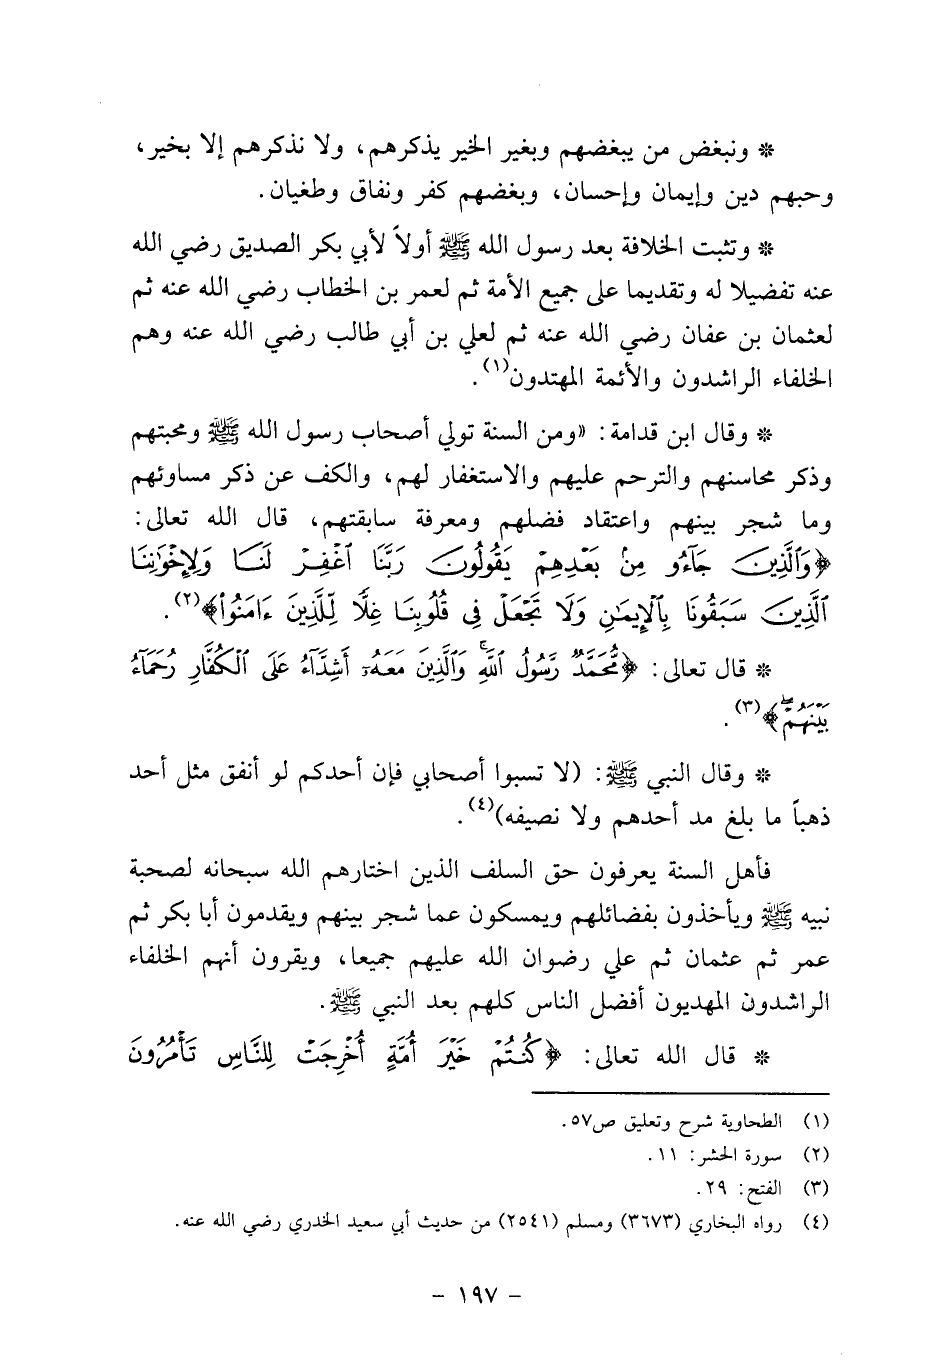 * ونبغض من يبغضهم وبغير الخير يذكرهم، ولا نذكرهم إلا بخير،
وحبهم دين وإيمان وإحسان، وبغضهم كفر ونفاق وطغيان.
* وتثبت الخلافة بعد رسول الله ﷺ أولاً لأبي بكر الصديق رضي الله
عنه تفضيلا له وتقديما على جميع الأمة ثم لعمر بن الخطاب رضي الله عنه ثم
لعثمان بن عفان رضي الله عنه ثم لعلي بن أبي طالب رضي الله عنه وهم
الخلفاء الراشدون والأئمة المهتدون(١).
* وقال ابن قدامة: «ومن السنة تولي أصحاب رسول الله ﷺ ومحبتهم
وذكر محاسنهم والترحم عليهم والاستغفار لهم، والكف عن ذكر مساوئهم
وما شجر بينهم واعتقاد فضلهم ومعرفة سابقتهم، قال الله تعالى:
﴿وَٱلَّذِينَ جَآءُو مِنۢ بَعْدِهِمْ يَقُولُونَ رَبَّنَا ٱغْفِرْ لَنَا وَلِإِخْوَٰنِنَا
ٱلَّذِينَ سَبَقُونَا بِٱلْإِيمَٰنِ وَلَا تَجْعَلْ فِى قُلُوبِنَا غِلًّا لِّلَّذِينَ ءَامَنُوا۟﴾(٢).
* قال تعالى: ﴿مُّحَمَّدٌ رَّسُولُ ٱللَّهِ ۚ وَٱلَّذِينَ مَعَهُۥٓ أَشِدَّآءُ عَلَى ٱلْكُفَّارِ رُحَمَآءُ
بَيْنَهُمْ ۖ﴾(٣).
* وقال النبي ﷺ: (لا تسبوا أصحابي فإن أحدكم لو أنفق مثل أحد
ذهباً ما بلغ مد أحدهم ولا نصيفه)(٤).
فأهل السنة يعرفون حق السلف الذين اختارهم الله سبحانه لصحبة
نبيه ﷺ ويأخذون بفضائلهم ويمسكون عما شجر بينهم ويقدمون أبا بكر ثم
عمر ثم عثمان ثم علي رضوان الله عليهم جميعا، ويقرون أنهم الخلفاء
الراشدون المهديون أفضل الناس كلهم بعد النبي ﷺ.
* قال الله تعالى: ﴿كُنتُمْ خَيْرَ أُمَّةٍ أُخْرِجَتْ لِلنَّاسِ تَأْمُرُونَ
(١) الطحاوية شرح وتعليق ص٥٧.
(٢) سورة الحشر: ١١.
(٣) الفتح: ٢٩.
(٤) رواه البخاري (٣٦٧٣) ومسلم (٢٥٤١) من حديث أبي سعيد الخدري رضي الله عنه.
- ١٩٧ -